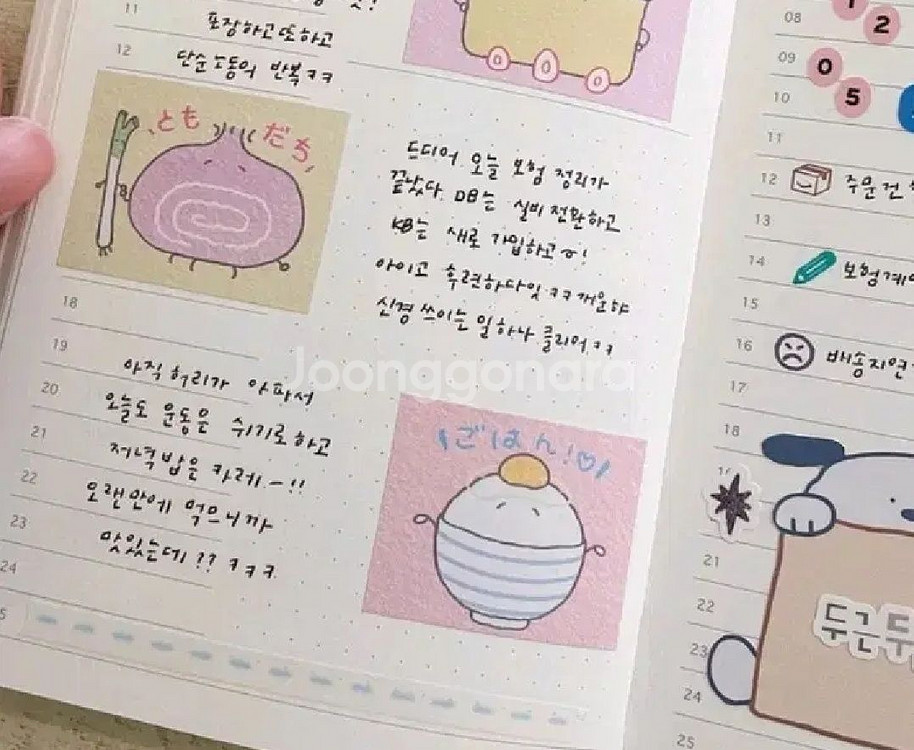 11
포장하고 또하고
12
단순노동의 반복ㅋㅋ
ともだち
드디어 오늘 보험 정리가
끝났다. DB는 실비 전환하고
KB는 새로 가입하고~!
아이고 후련하다잇ㅋㅋ 개운하
신경 쓰이는 일 하나 클리어ㅋㅋ
18
19
아직 허리가 아파서
20
오늘도 운동은 쉬기로 하고
21
저녁밥은 카레-!!
22
오랜만에 먹으니까
23
맛있는데?? ㅋㅋㅋ
24
ごはん!♡
Joonggonara
08
2
09
0
10
5
11
12
주문건
13
14
보험계
15
16
배송지연
17
18
21
22
23
24
25
두근두